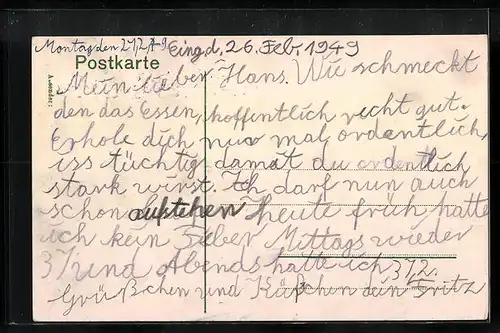 Montag den 21,2,49. Eing. d. 26. Feb. 1949
Postkarte
Absender:
Mein lieber Hans. Wie schmeckt
den das Essen, hoffentlich recht gut.
Erhole dich nur mal ordentlich,
iss tüchtig damit du ordentlich
stark wirst. Ich darf nun auch
schon aufstehen heute früh hatte
ich kein Fieber Mittags wieder
37 und Abends hatte ich 37,2.
Grüßchen und Küßchen dein Fritz